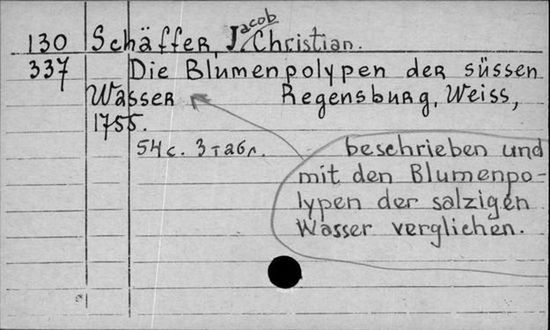 130 Schäffer, Jacob Christian.
337 Die Blumenpolypen der süssen
Wasser Regensburg, Weiss,
1755.
54 с. 3 табл.
beschrieben und
mit den Blumenpo-
lypen der salzigen
Wasser verglichen.